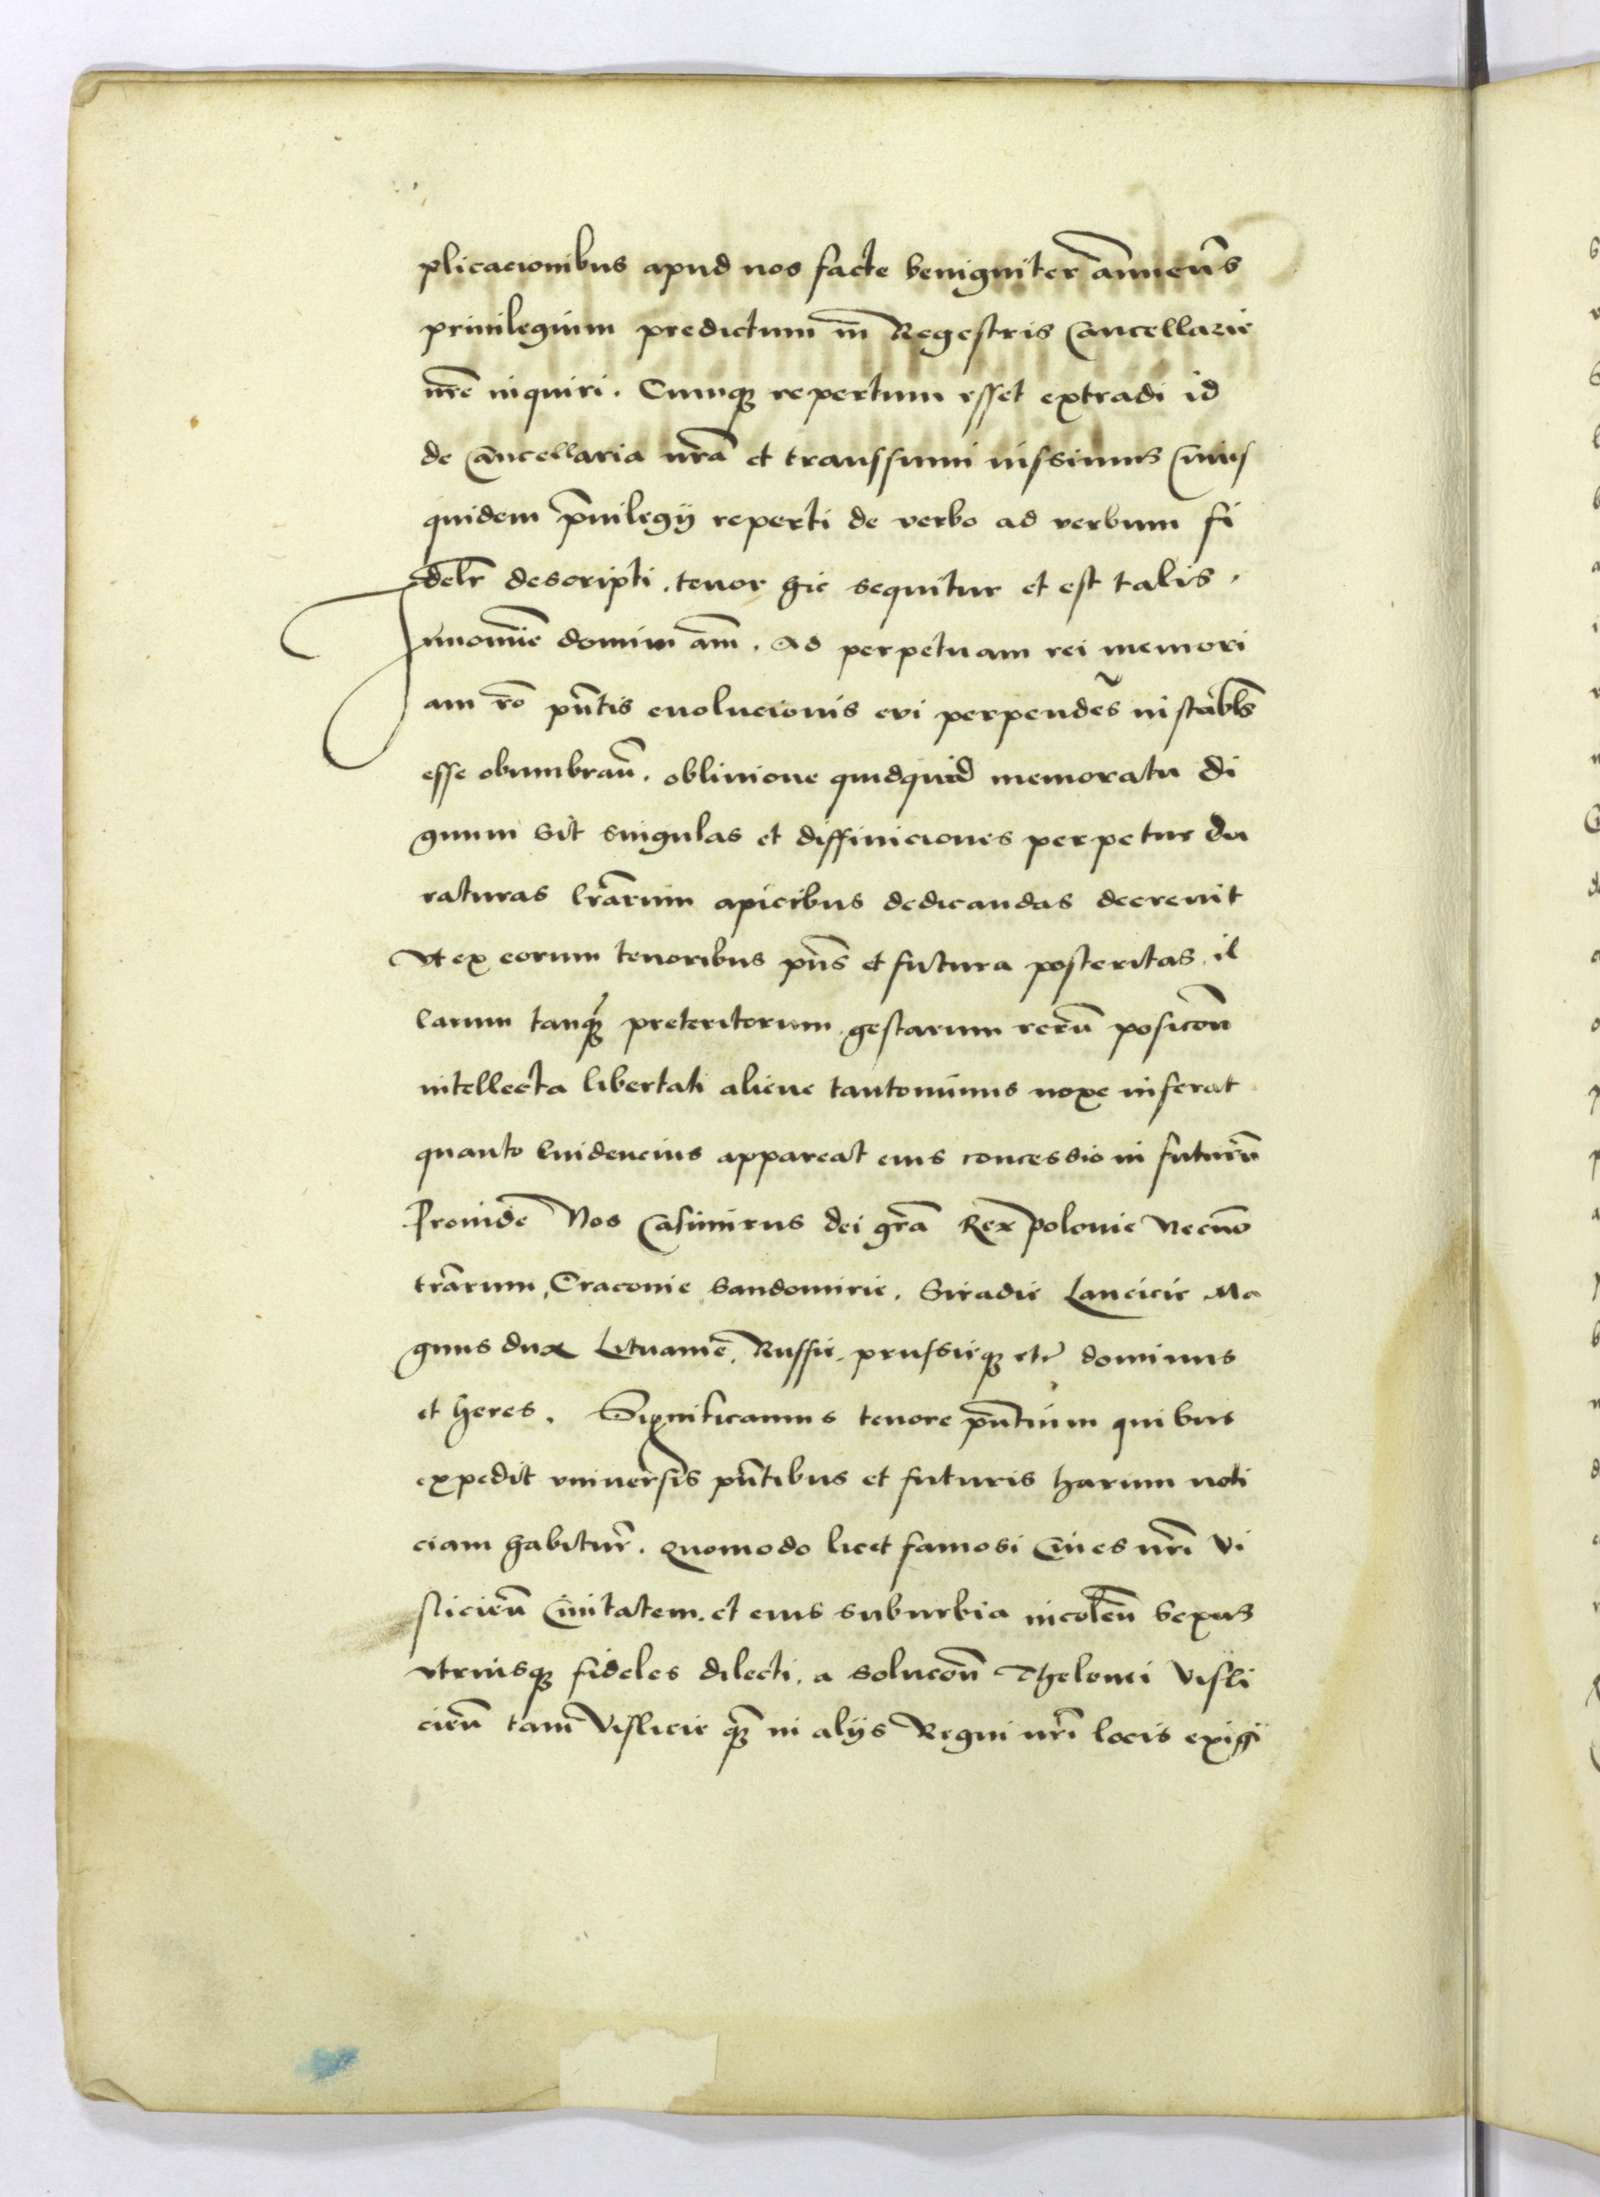 plicacionibus apud nos facte benigniter añnueñs
priuilegium predictum iñ Regestris Cancellarie
nr̃e inquiri. Cumqꝫ repertum esset extradi id
de Cancellaria nr̃a et transsumi iussimus Cuius
quidem p̃uilegÿ reperti de verbo ad verbum fi
delr̃ descripti. tenor hic sequitur et est talis.
Innomĩe domini am̃. Ad perpetuam rei memori
am rõ pñtis euolucionis eui perpendẽs instabl̃s
esse obumbrañ. obliuione quidquid memoratu di
gnum sit singulas et diffiniciones perpetue du
raturas lr̃arum apicibus dedicandas decreuit
Vt ex eorum tenoribus pñs et futura posteritas il
larum tanqꝫ preteritorum gestarum rerũ posicõn
intellecta libertati aliene tantominus noxe inferat
quanto luidencius appareat eius concessio in futurũ
Prouide Nos Casimirus dei gr̃a Rex polonie Necnõ
tr̃arum, Cracouie Sandomirie. Siradie Lancicie Ma
gnus dux Lituanie. Russie. prussieqꝫ etc̃ dominus
et heres. Significamus tenore pñtium quibus
expedit vniuersis pñtibus et futuris harum noti
ciam habitur̃. Quomodo licet famosi Ciues nr̃i Vi
sliciẽn Ciuitatem. et eius suburbia incoleñ sexus
vtriusqꝫ fideles dilecti. a solucõn Thelonei Visli
cieñ tam Vislicie qꝫ in alÿs Regni nr̃i locis exigi